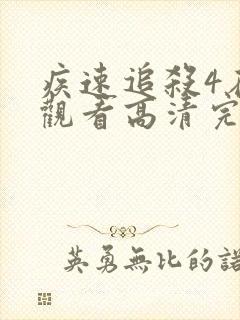 疾速追殺4
觀看高清完
英勇無比的